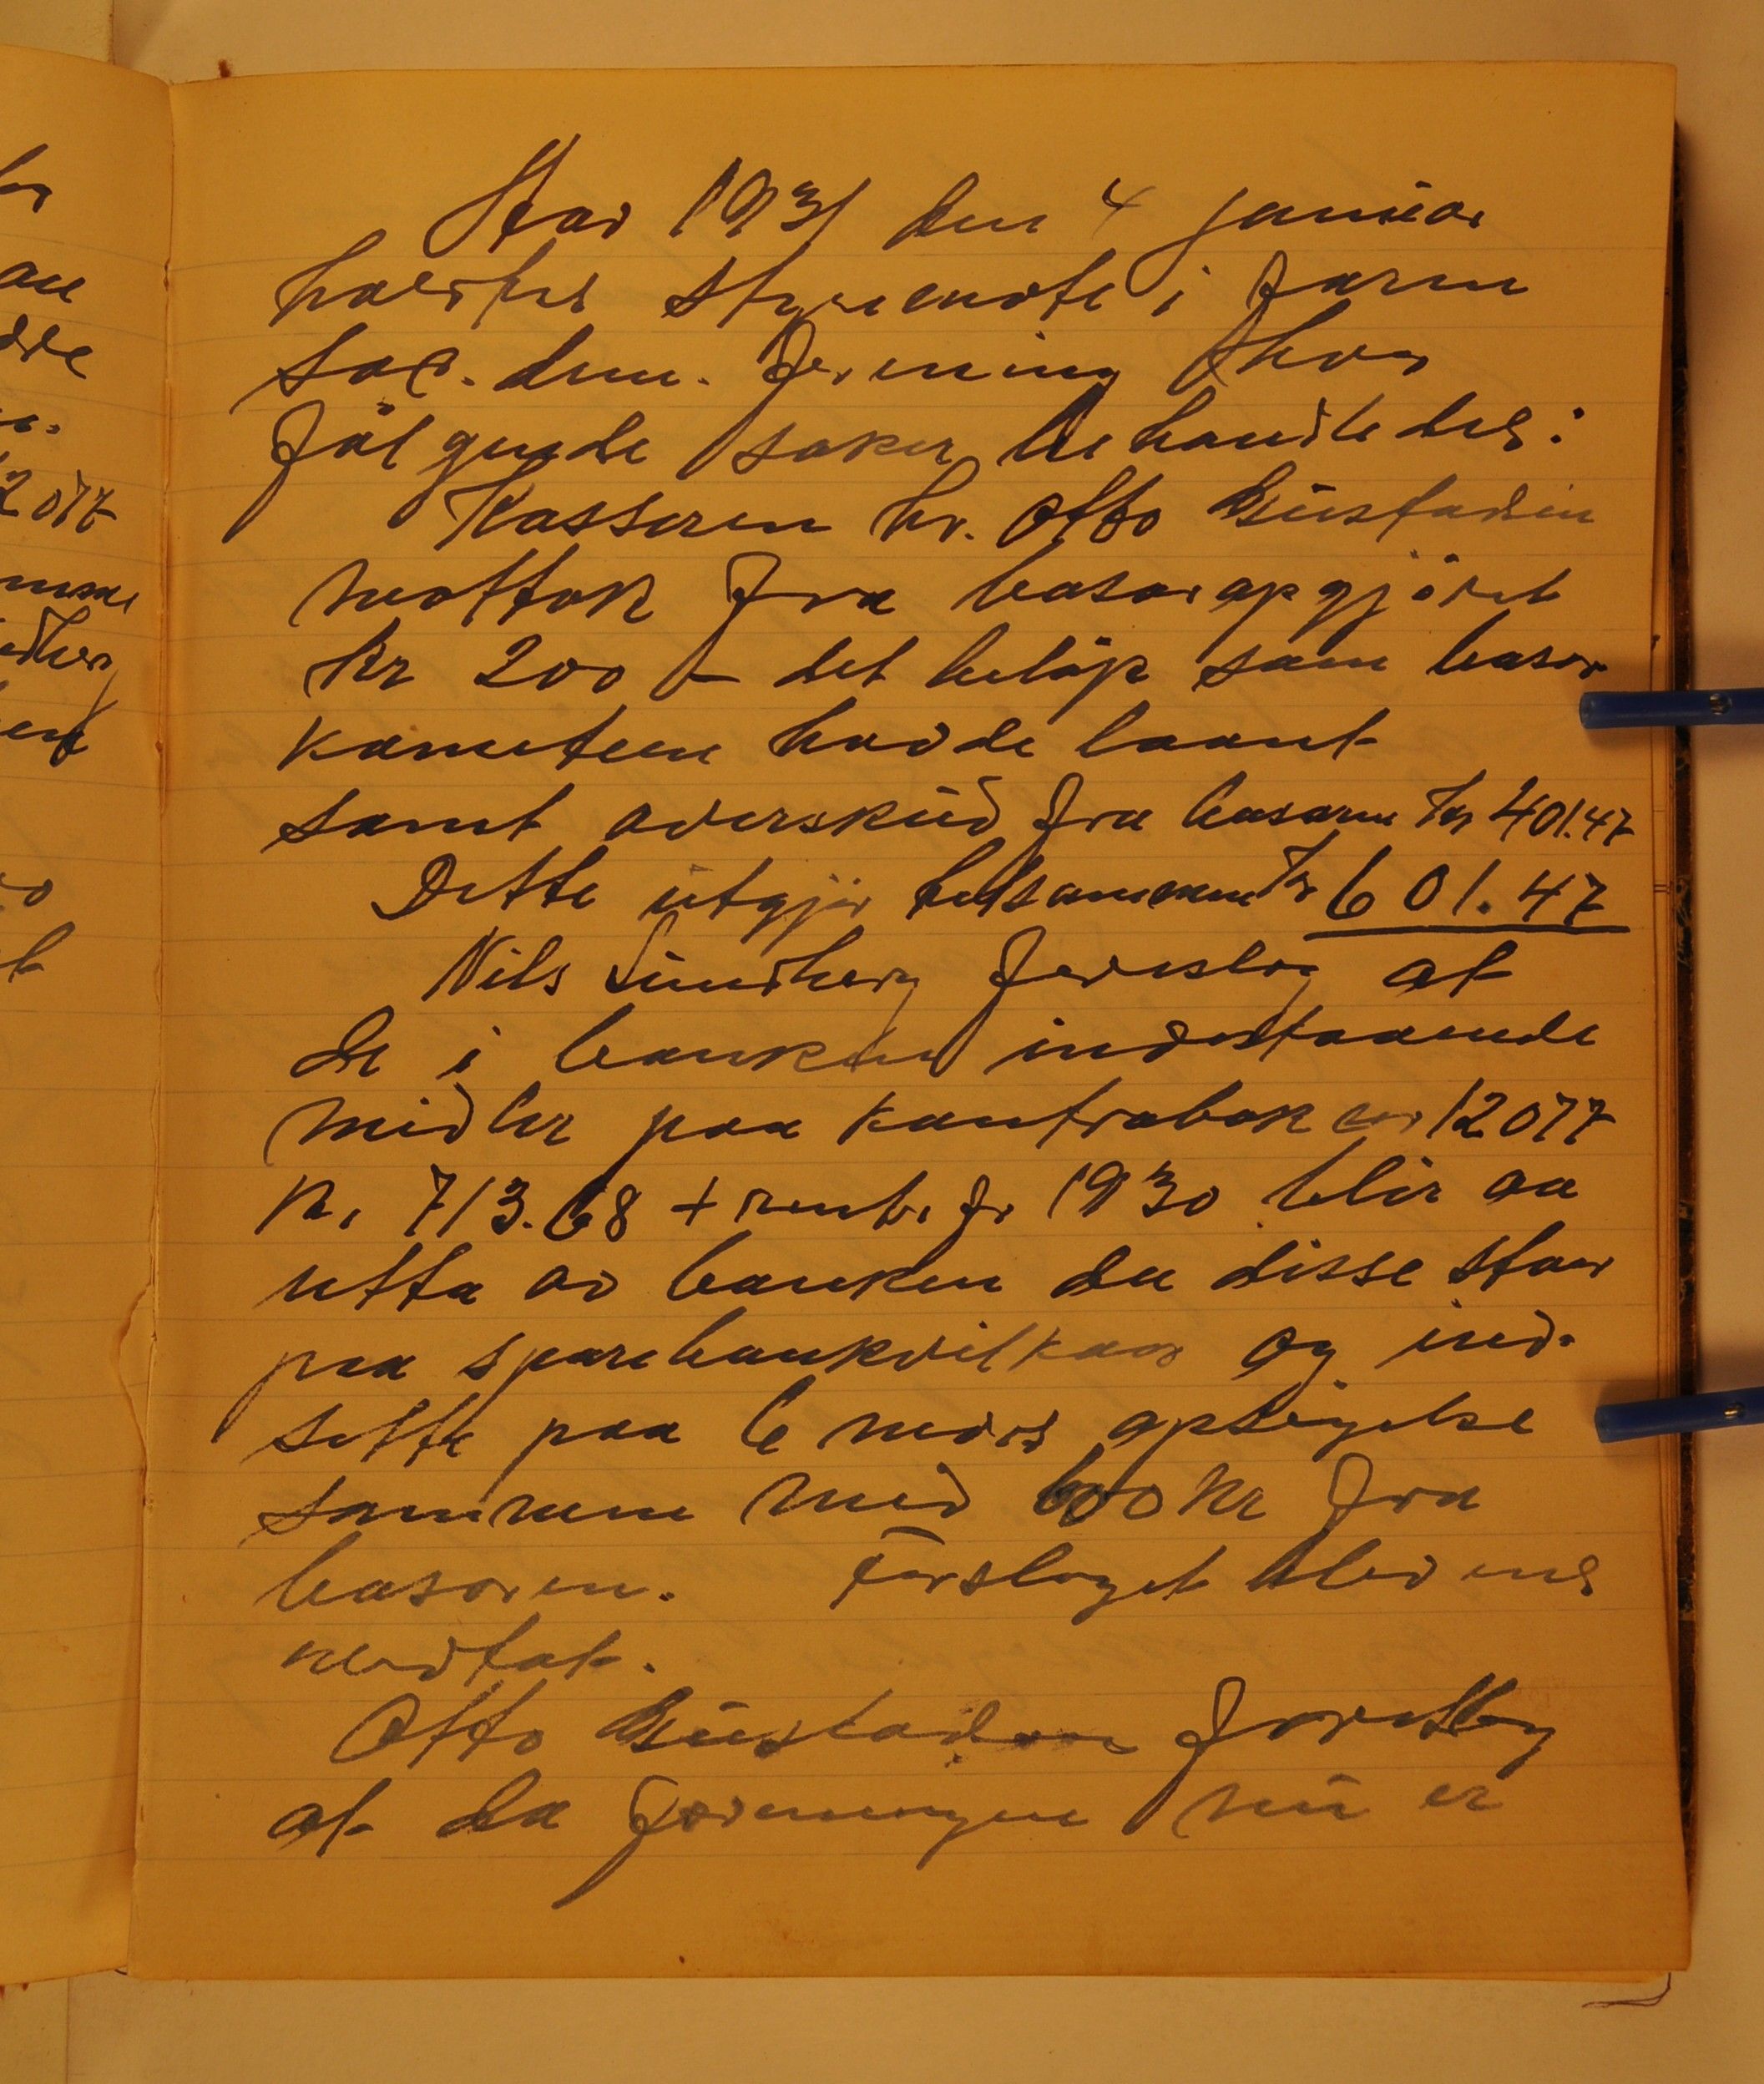 Aar 1931 den 4 januar
holdtes styremøte i Farm
soc. dem. forening hvor
fölgende saker behandledes:
Kasseren hr. Otto Gustadsen
mottok fra basaropgjöret
kr 200 – det belöp som basar
komiteen havde laant
samt overskud fra basaren kr 401.47
Dette utgjör tilsammen kr 601.47
Nils Lundberg foreslog at
de i banken indestaaende
midler paa kontrabok nr 12077
kr 713.68 + rent. fr 1930 blir aa
utta av banken da disse staar
paa sparebankvilkaar og ind-
sette paa 6 mdrs opsigelse
sammen med 600 kr fra
basaren. Forslaget blev ens
vedtat.
Otto Gustadsen foreslog
at da foreningen nu er
lr
au
dre
2077
edberg
en
t